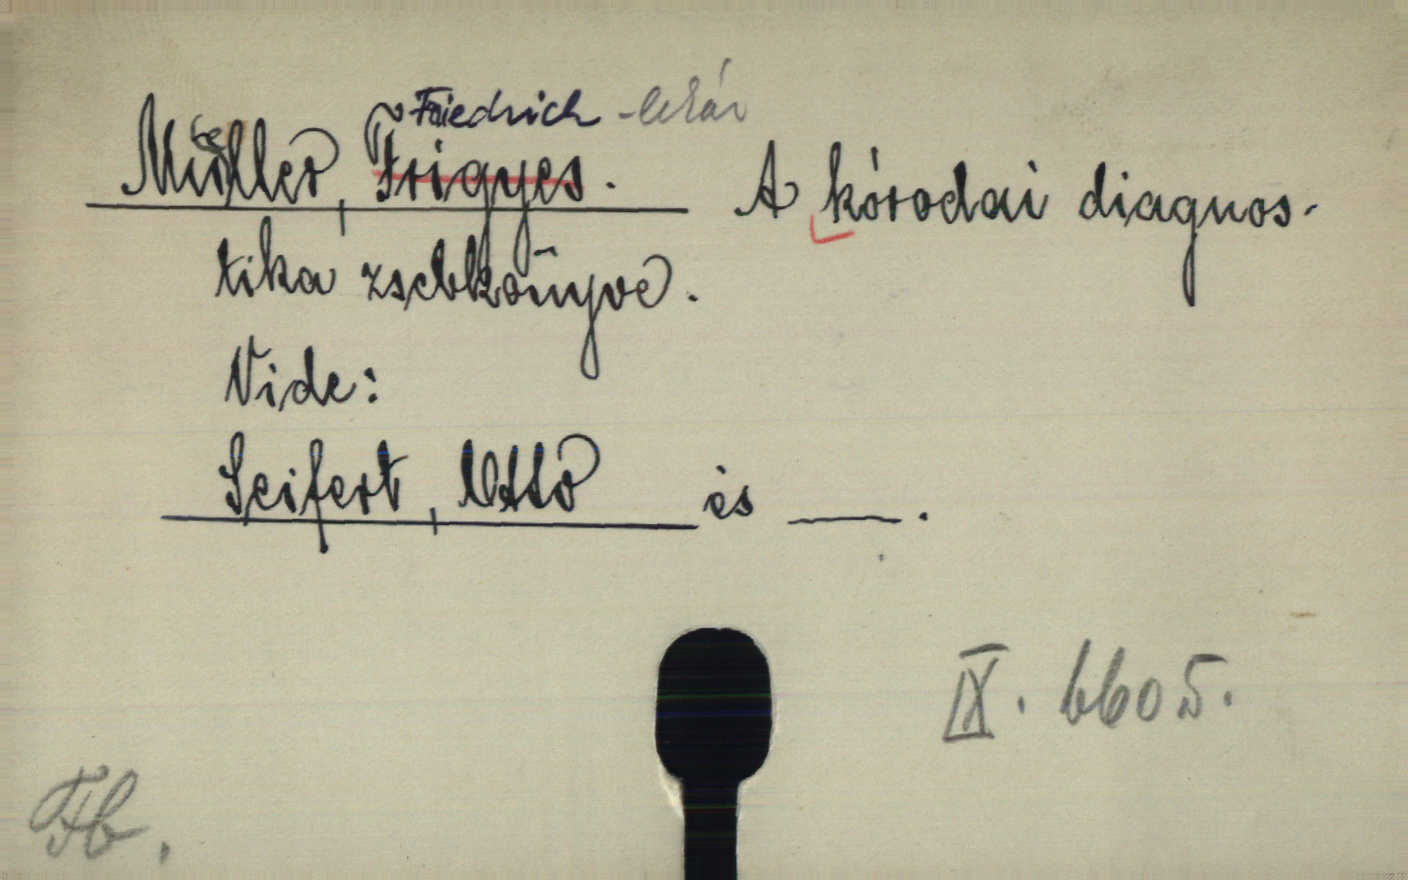 Friedrich - lekár
Müller, Frigyes. A kórodai diagnos-
tika zsebkönyve.
Vide:
Seifert, Ottó és ___.
IX. 6605.
Fb.